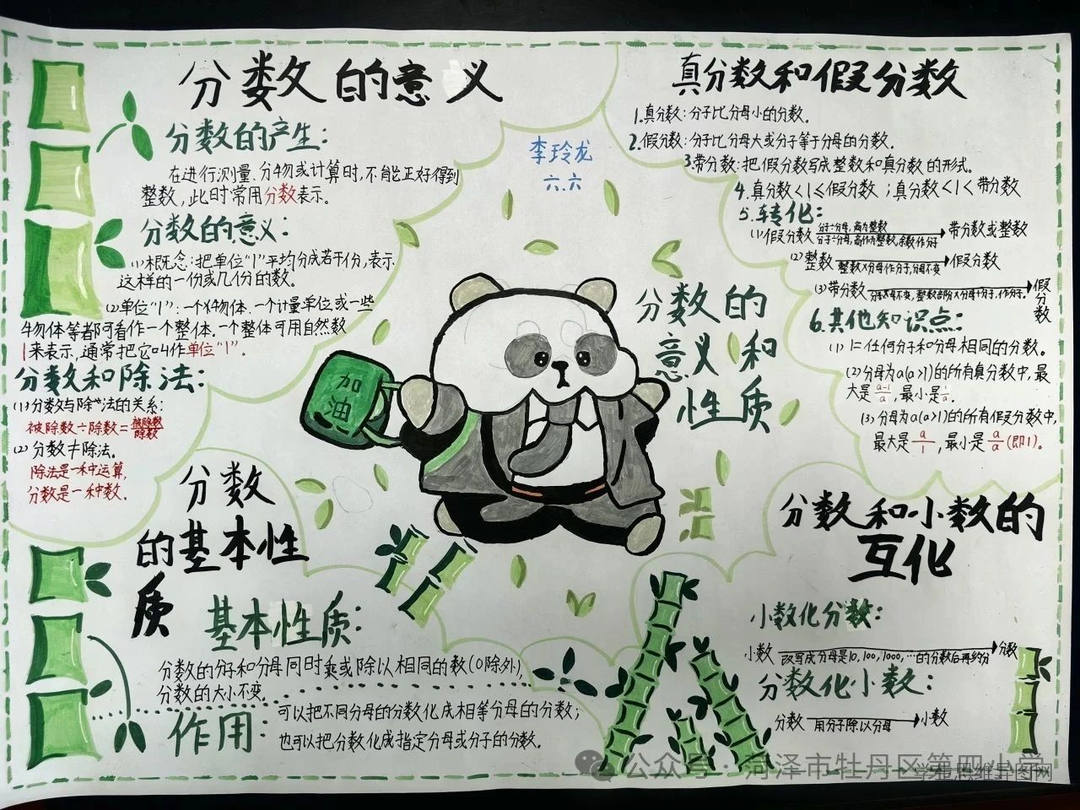 分数的意义
分数的产生：
在进行测量、分物或计算时，不能正好得到
整数，此时常用分数表示。
分数的意义：
(1)概念：把单位“1”平均分成若干份，表示
这样的一份或几份的数。
(2)单位“1”：一个物体、一个计量单位或一些
物体等都可看作一个整体，一个整体可用自然数
1来表示，通常把它叫作单位“1”。
分数和除法：
(1)分数与除法的关系：
被除数÷除数=被除数/除数
(2)分数≠除法。
除法是一种运算，
分数是一种数。
李玲龙
六.六
真分数和假分数
1.真分数：分子比分母小的分数。
2.假分数：分子比分母大或分子等于分母的分数。
3.带分数：把假分数写成整数和真分数的形式。
4.真分数<1≤假分数；真分数<1<带分数
5.转化：
(1)假分数 分子÷分母，商为整数 带分数或整数
分子÷分母，商作为整数，余数作分子
(2)整数 整数×分母作分子，分母不变 假分数
(3)带分数 分母不变，整数部分×分母+分子，作分子。 假分数
6.其他知识点：
(1)1=任何分子和分母相同的分数。
(2)分母为a(a>1)的所有真分数中，最
大是a-1/a，最小是1/a。
(3)分母为a(a>1)的所有假分数中，
最大是a/1，最小是a/a(即1)。
加油
分数的
意义和
性质
分数
的基本性
质
基本性质：
分数的分子和分母同时乘或除以相同的数(0除外)，
分数的大小不变。
作用：
可以把不同分母的分数化成相等分母的分数；
也可以把分数化成指定分母或分子的分数。
分数和小数的
互化
小数化分数：
小数 改写成分母是10，100，1000，…的分数后再约分 分数
分数化小数：
分数 用分子除以分母 小数
公众号·菏泽市牡丹区第四小学